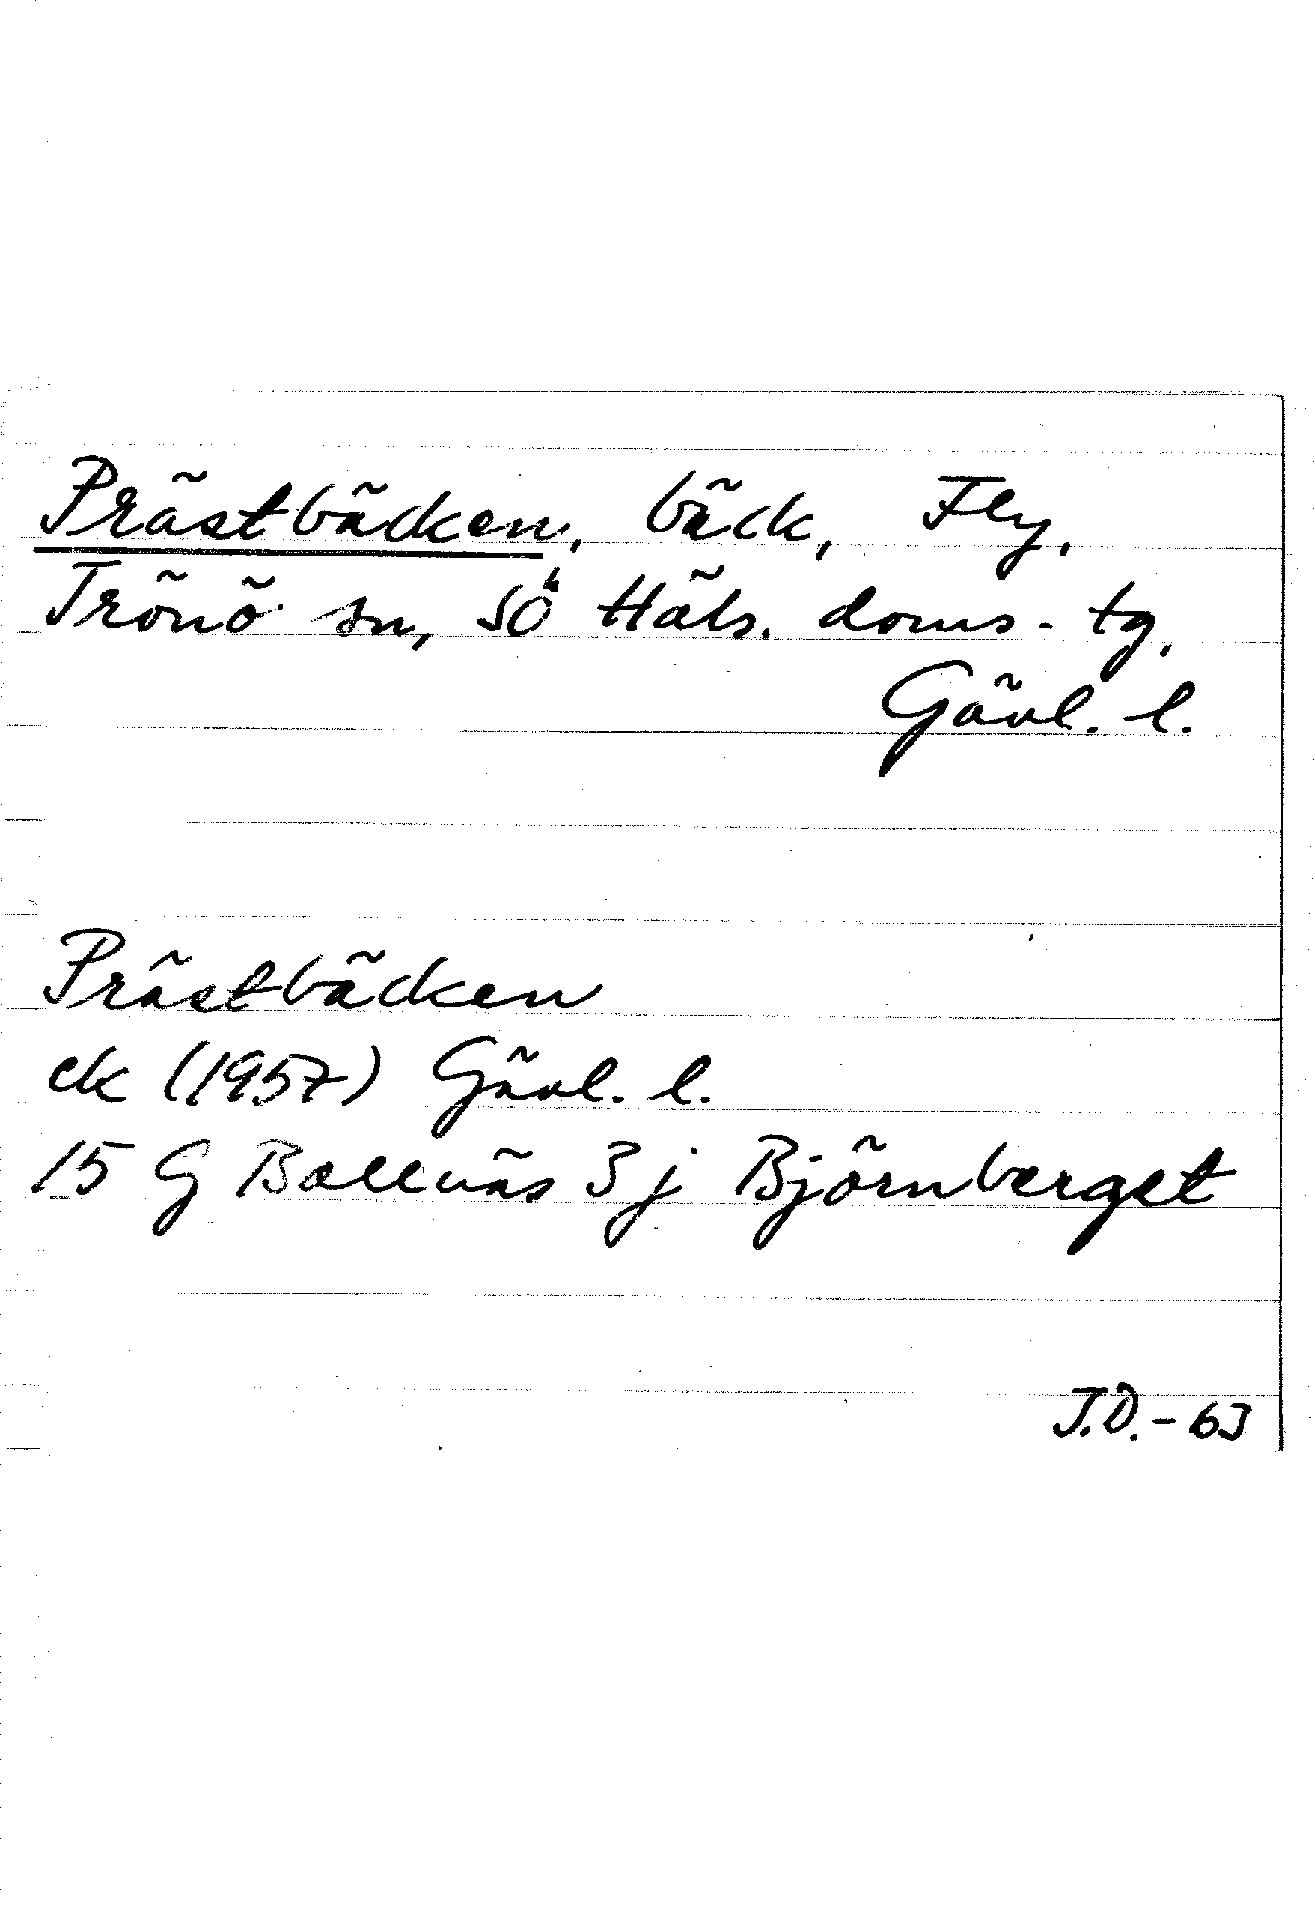 Prästbäcken, bäck, Fly,
Trönö sn, Sö Häls. doms-tg,
Gävl. l.
Prästbäcken
ek (1957) Gävl. l.
15 G Bollnäs 3 j Björnberget
J.D.-63